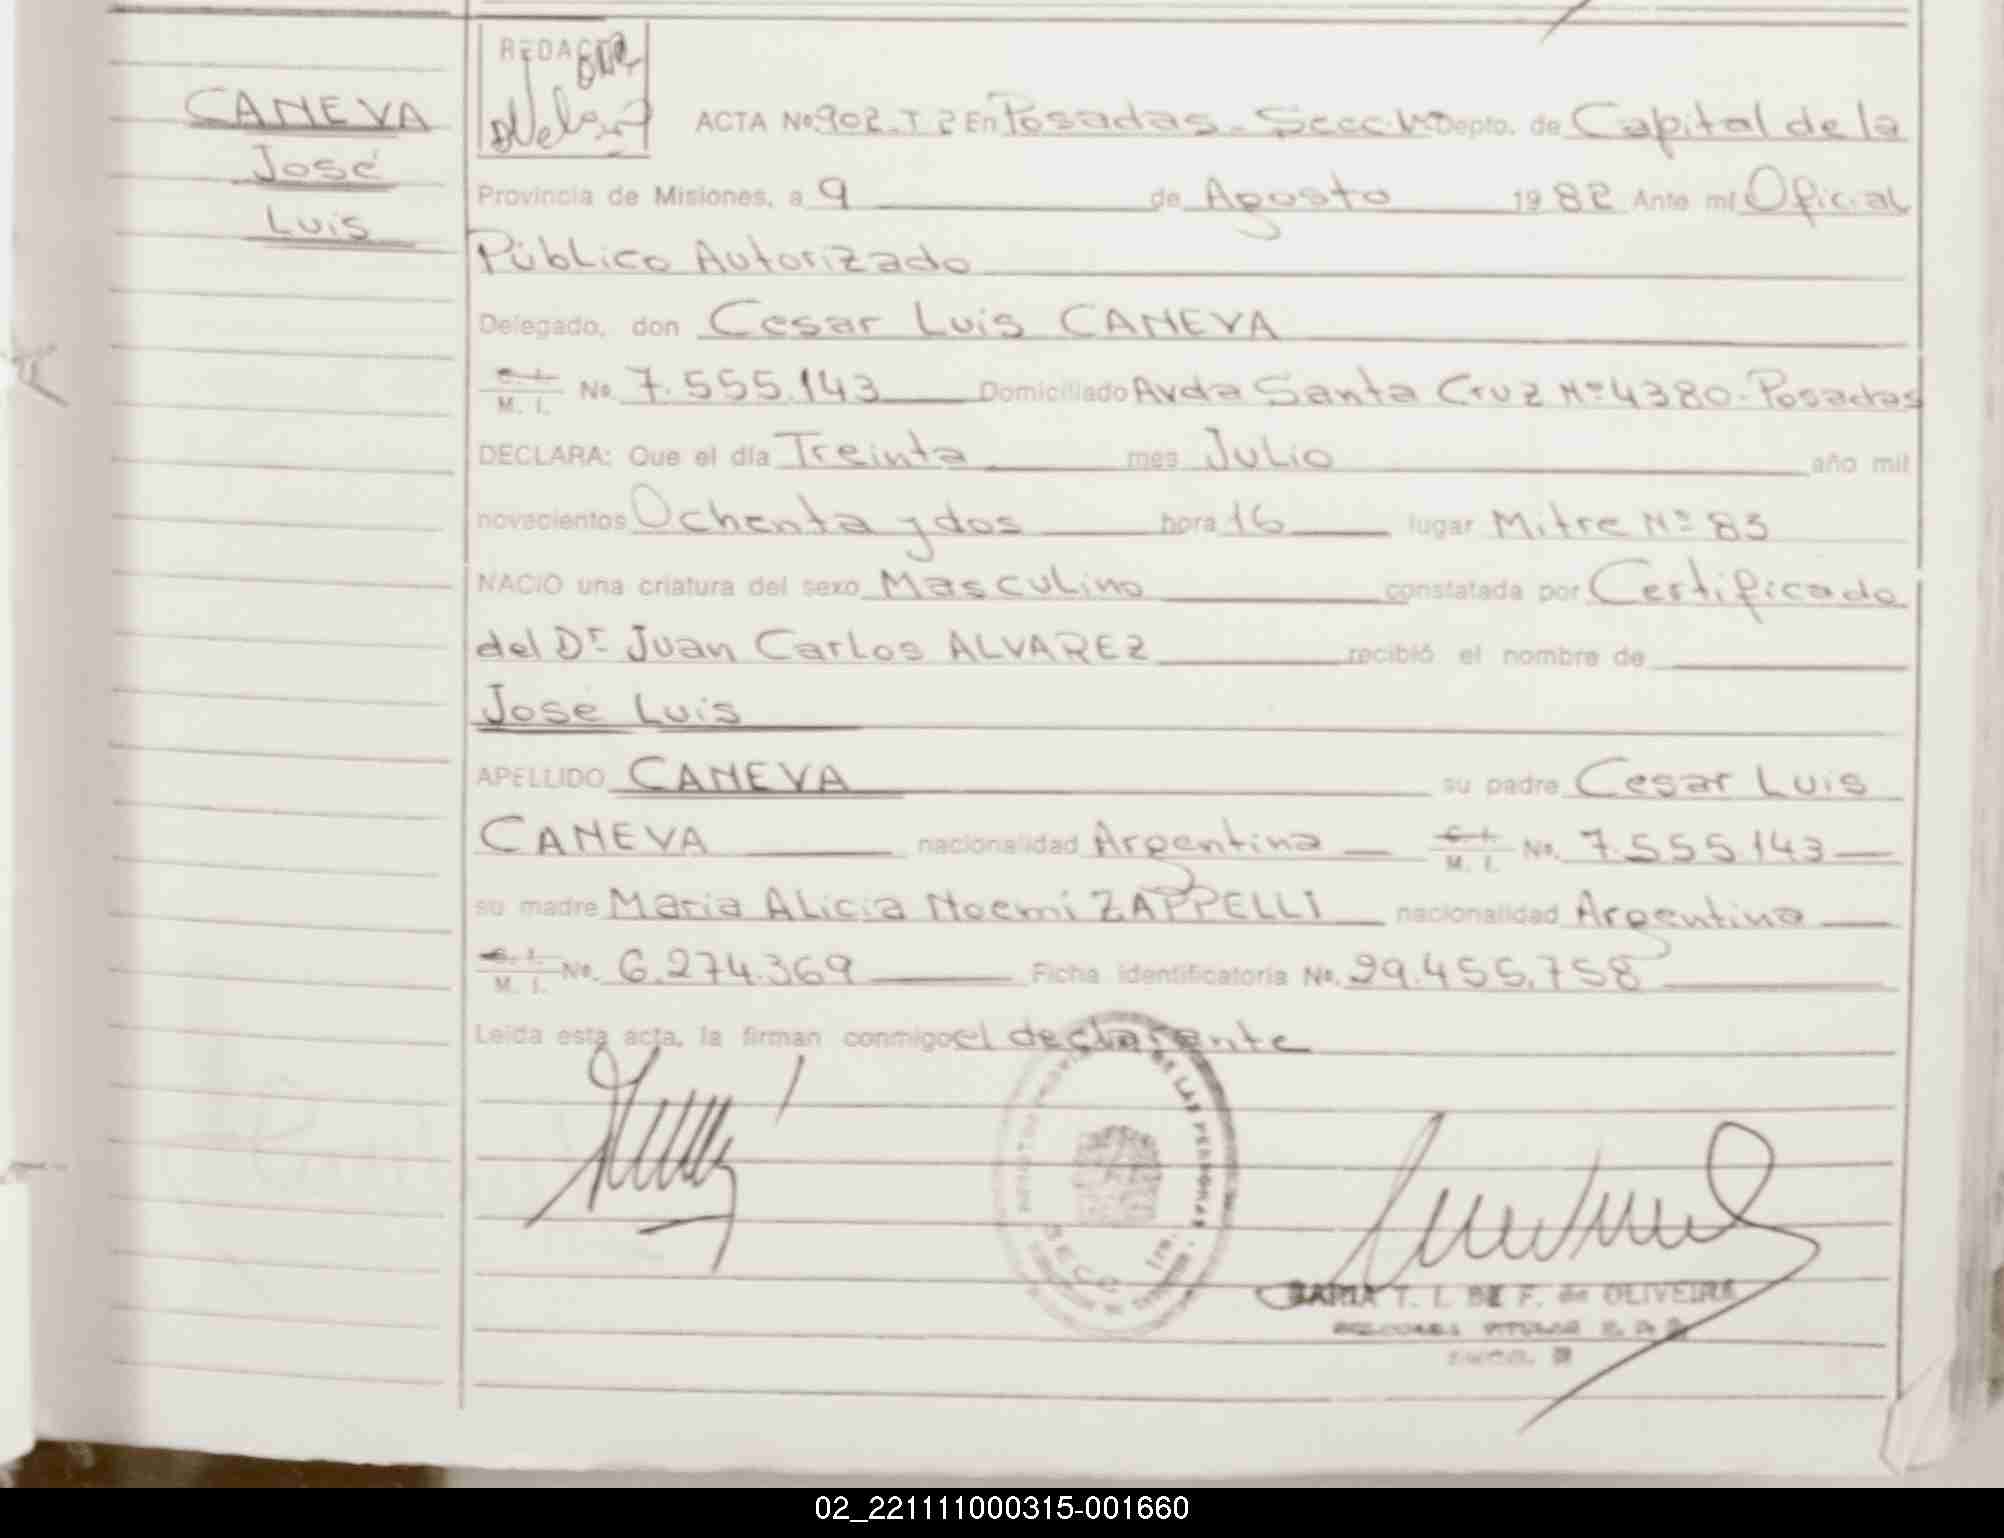 CANEVA
José
Luis
REDACTO
ACTA No. 902. T 2 En Posadas - Depto. de Capital de la
Provincia de Misiones, a 9 de Agosto 1982 Ante mí Oficial
Público Autorizado
Delegado, don Cesar Luis CANEVA
C. I. M. I. No. 7.555.143 Domiciliado Avda Santa Cruz Nº 4380 - Posadas
DECLARA: Que el día Treinta mes Julio año mil
novecientos Ochenta y dos hora 16 lugar Mitre Nº 83
NACIO una criatura del sexo Masculino constatada por Certificado
del Dr. Juan Carlos ALVAREZ recibió el nombre de
José Luis
APELLIDO CANEVA su padre Cesar Luis
CANEVA nacionalidad Argentina C. I. M. I. No. 7.555.143
su madre Maria Alicia Noemí ZAPPELLI nacionalidad Argentina
C. I. M. I. No. 6.274.369 Ficha identificatoria No. 29.455.758
Leída esta acta, la firman conmigo el declarante
DE LAS PERSONAS
SECC. 1ra.
MARIA T. I. DE F. de OLIVEIRA
02_221111000315-001660